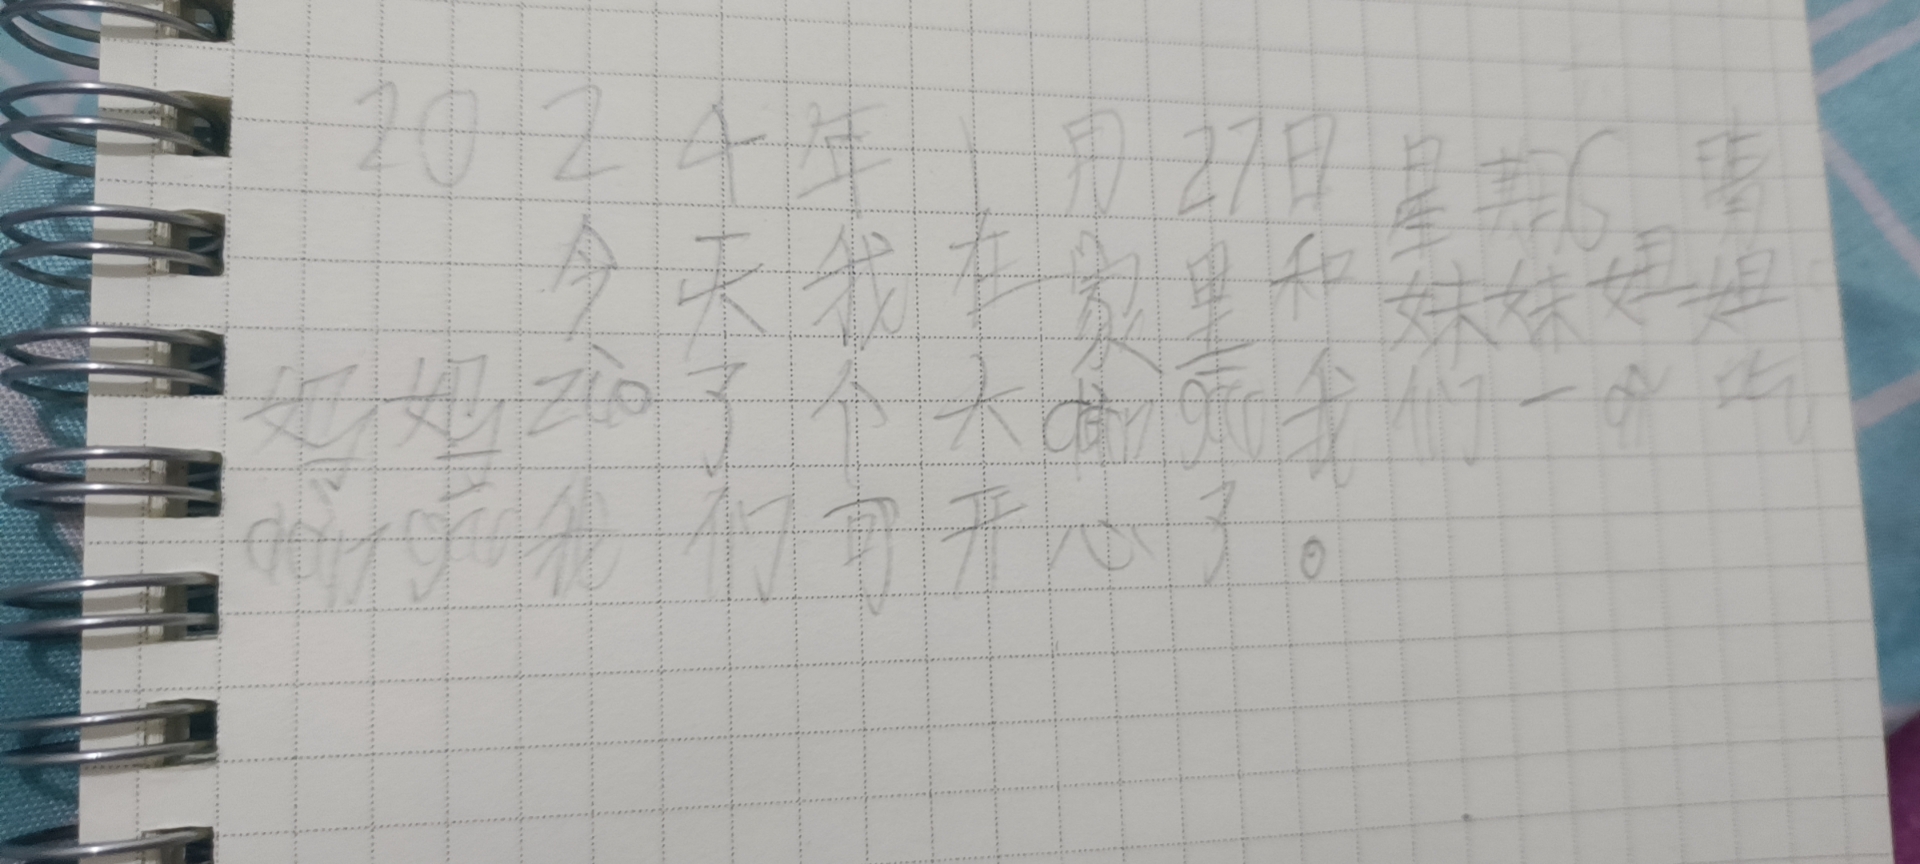 2024年1月27日 星期6 雪
今天我在家里和妹妹姐姐
妈妈zùo了个大dàn gāo我们一qǐ吃
dàn gāo我们可开心了。